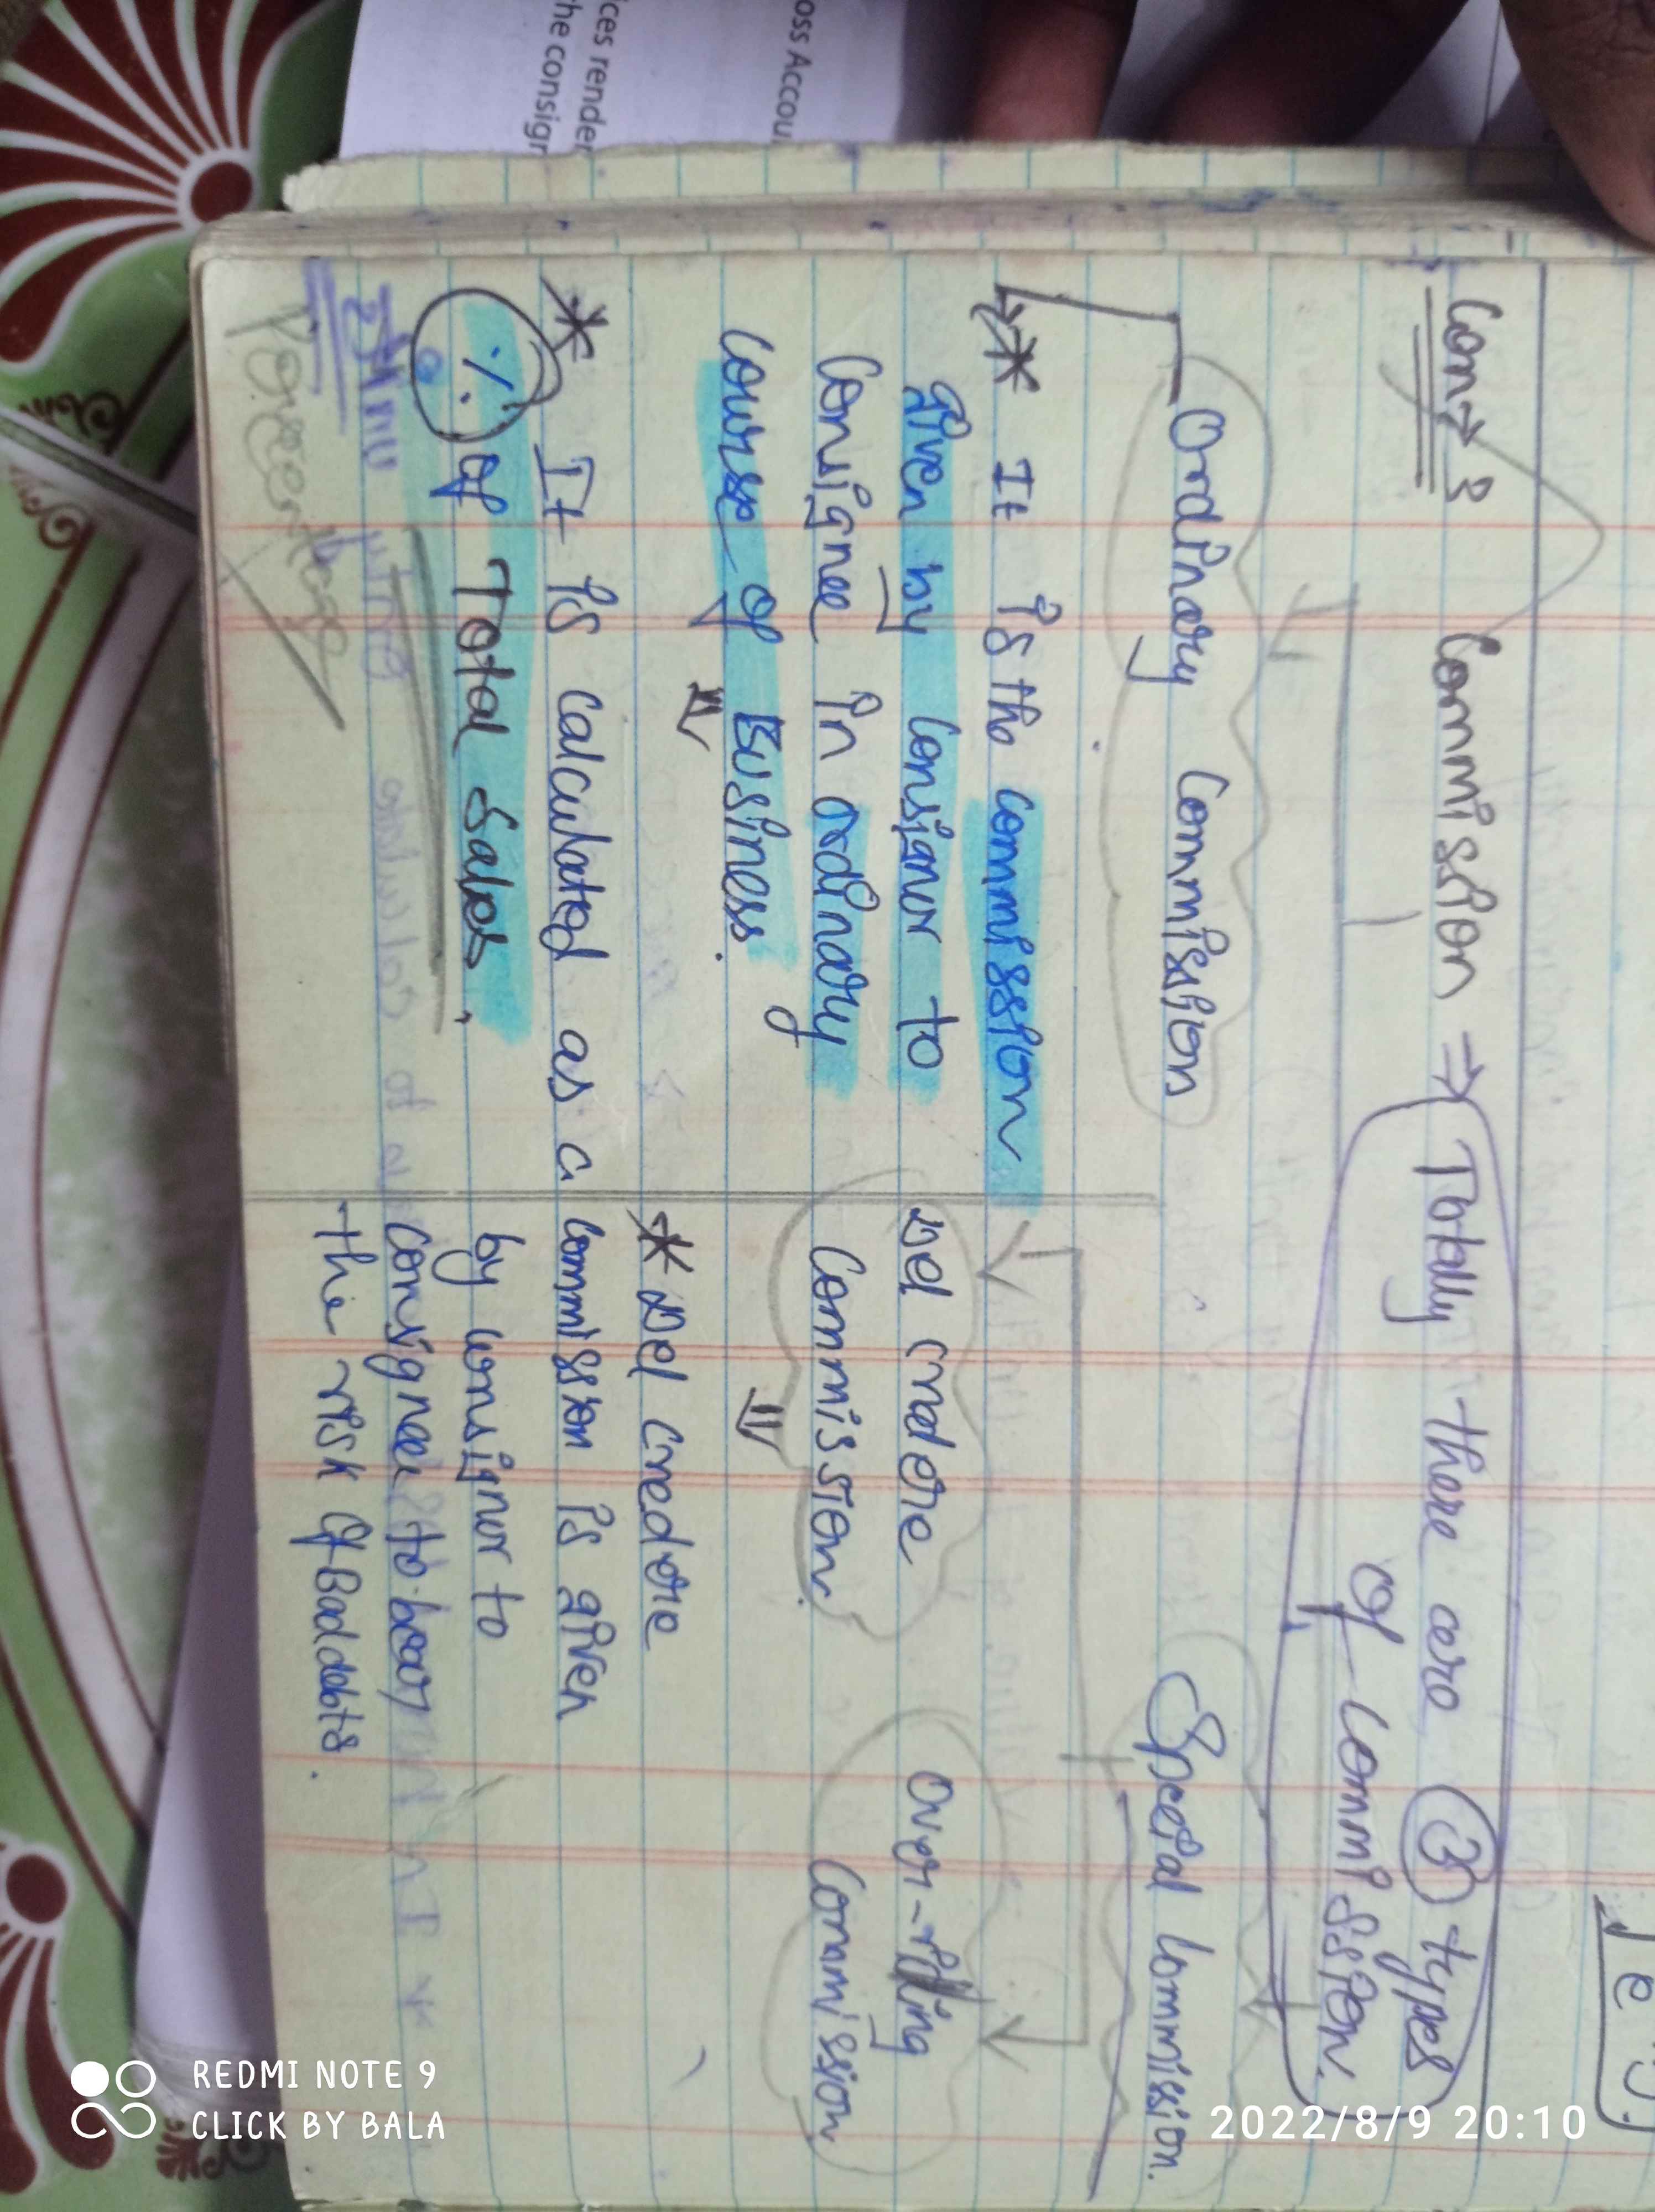 oss Accou
ices render
he consign
Con → 3
Commission ⇒ Totally there are ③ types
of commission.
Ordinary Commission
Special Commission.
* It is the commission
given by consignor to
Consignee in ordinary
course of Business.
* It is calculated as a
% of Total Sales.
Percentage
Del credere
Commission.
Over-riding
Commission
* Del credere
commission is given
by consignor to
consignee to bear
the risk of Bad debts.
REDMI NOTE 9
CLICK BY BALA
2022/8/9 20:10